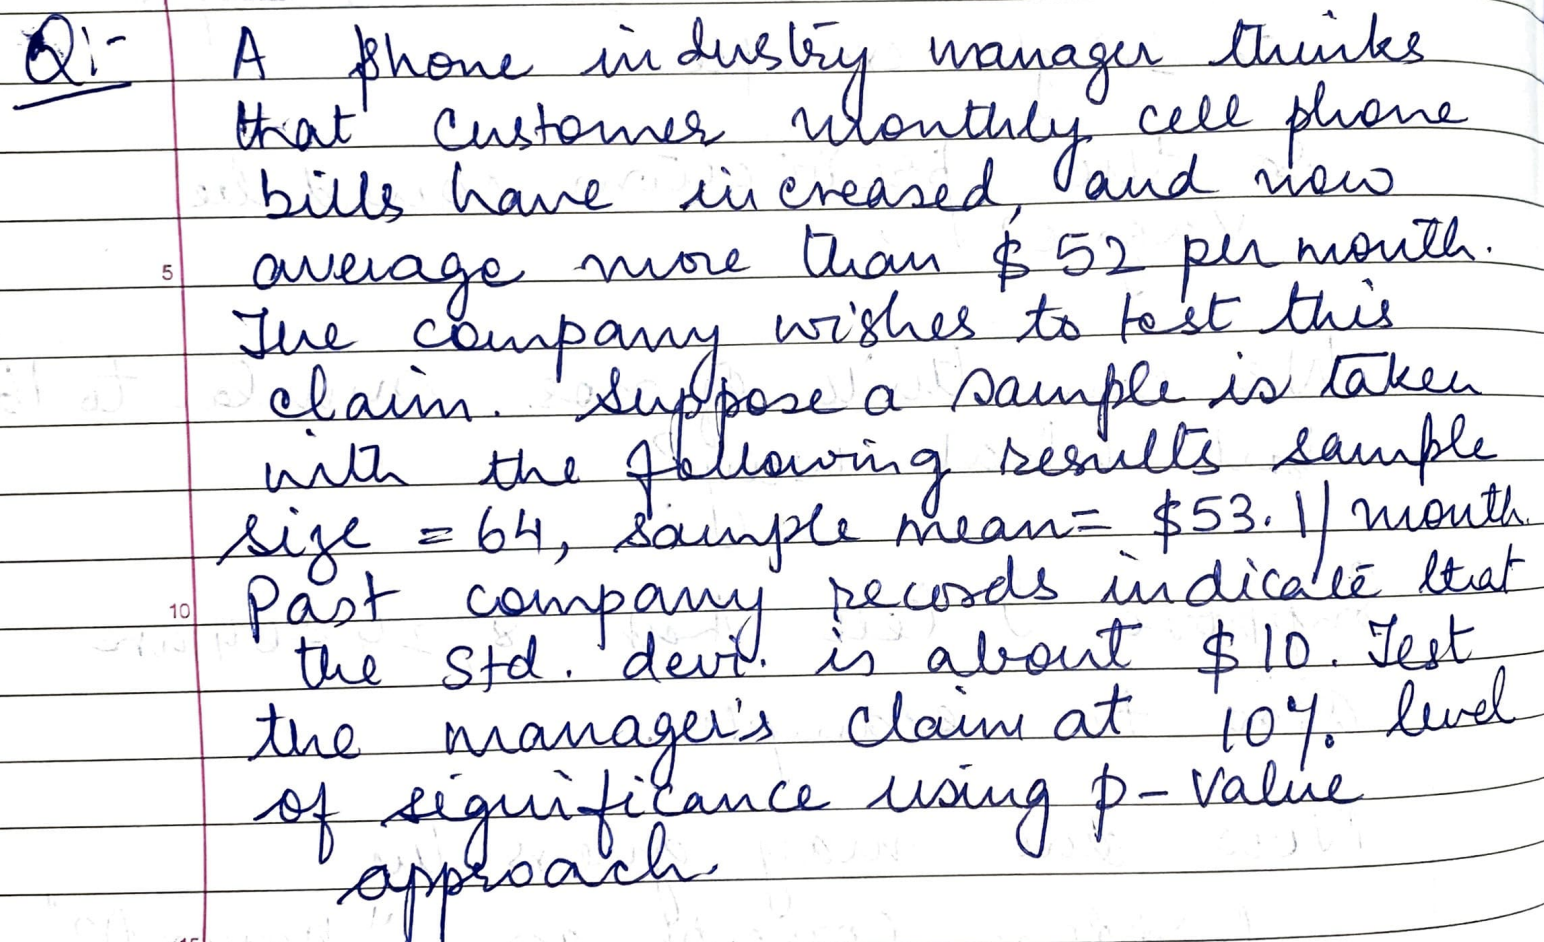 Q:- A phone industry manager thinks
that customer monthly cell phone
bills have increased, and now
5 average more than $ 52 per month.
The company wishes to test this
claim. Suppose a sample is taken
with the following results sample
size = 64, sample mean = $53.1/ month.
10 Past company records indicate that
the std. devi. is about $10. Test
the manager's claim at 10% level
of significance using p-value
approach.